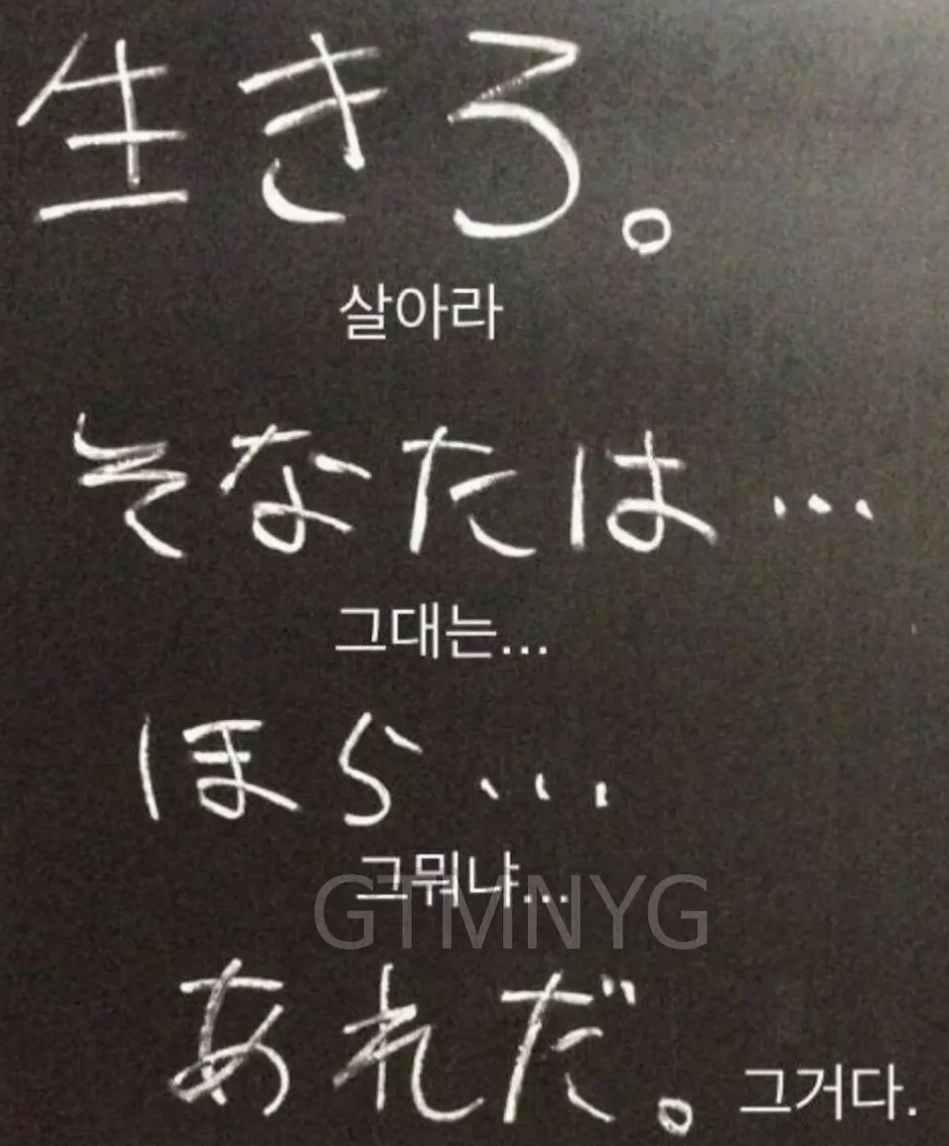 生きろ。
살아라
そなたは…
그대는...
ほら...
그뭐냐...
GTMNYG
あれだ。 그거다.